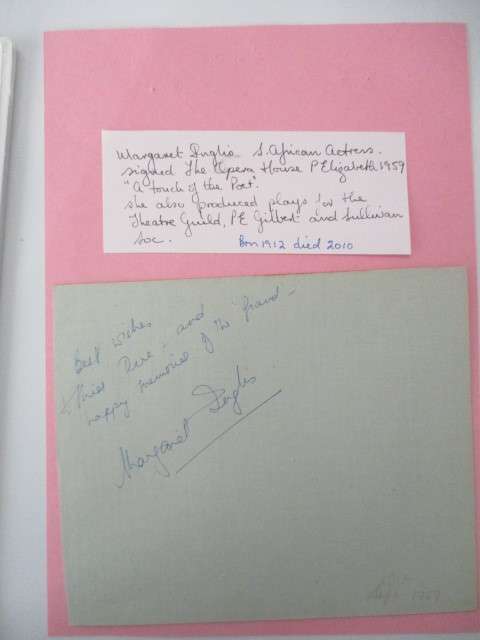 Margaret Inglis S. African Actress.
signed The Opera House P Elizabeth 1959
"A touch of the Poet".
she also produced plays for the
Theatre Guild, P.E Gilbert and Sullivan
Soc.
Born 1912 died 2010
Best wishes
and
happy memories of the Grand -
Margaret Inglis
Sept 1959